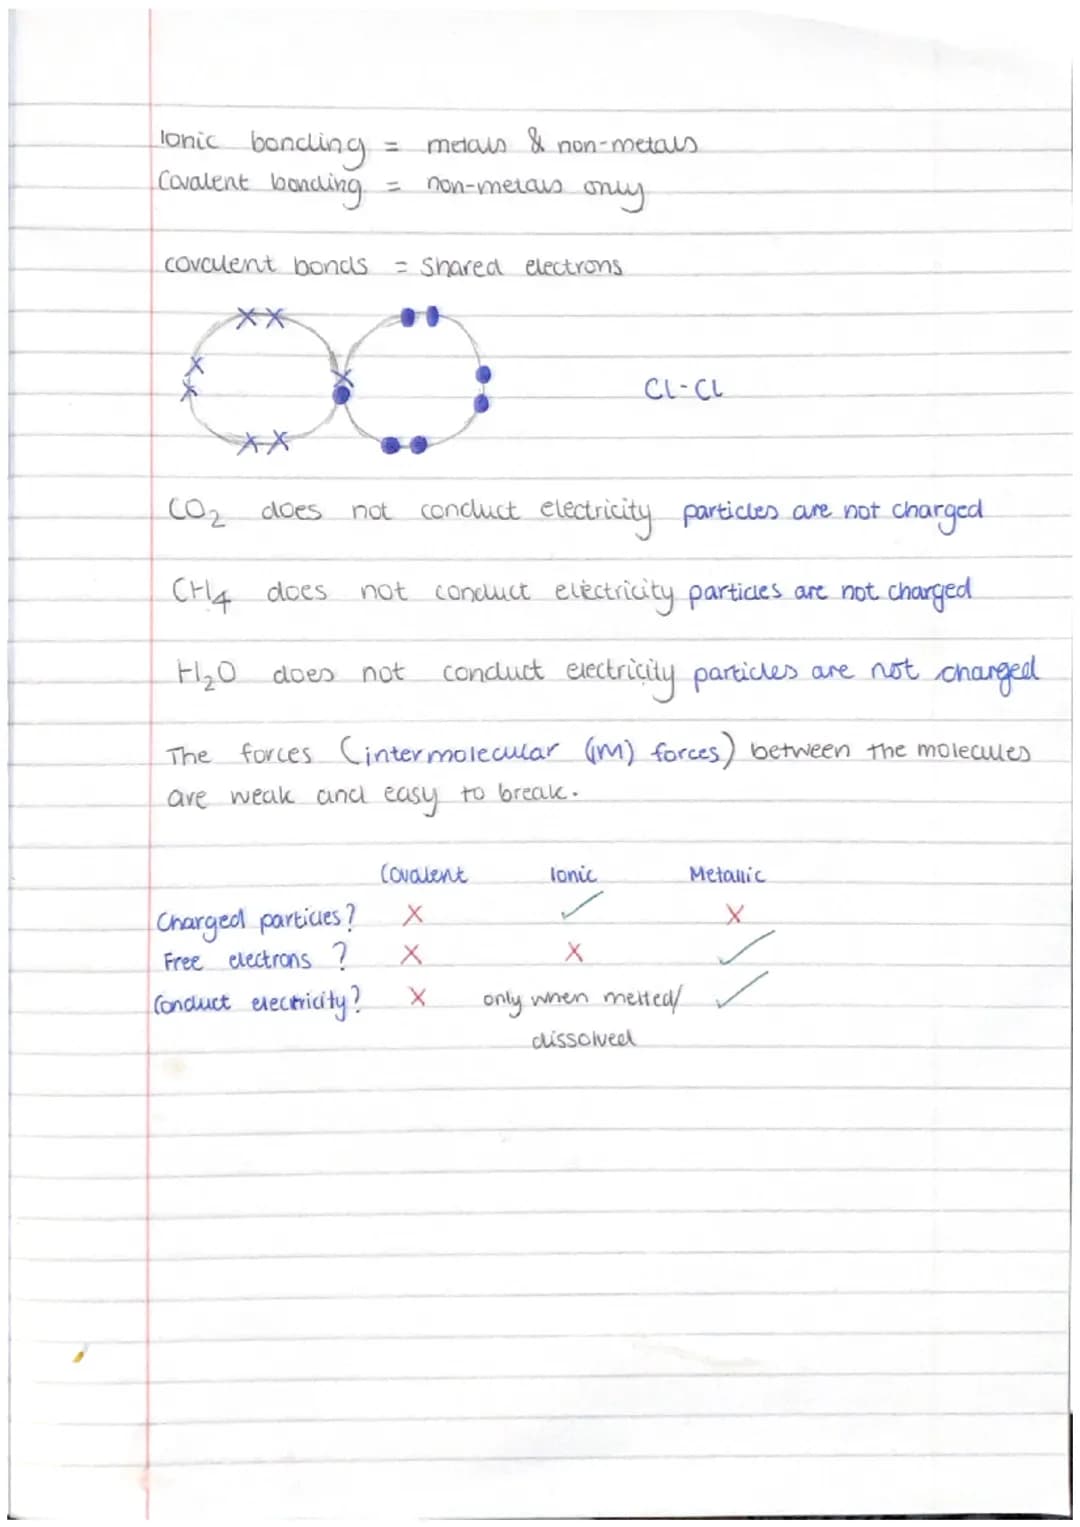 Ionic bonding = metals & non-metals
Covalent bonding = non-metals only
covalent bonds = shared electrons
Cl-Cl
CO₂ does not conduct electricity particles are not charged
CH₄ does not conduct electricity particles are not charged
H₂O does not conduct electricity particles are not charged
The forces (intermolecular (IM) forces) between the molecules
are weak and easy to break.
Covalent Ionic Metallic
Charged particles? X ✓ X
Free electrons ? X X ✓
Conduct electricity? X only when melted/ ✓
dissolved